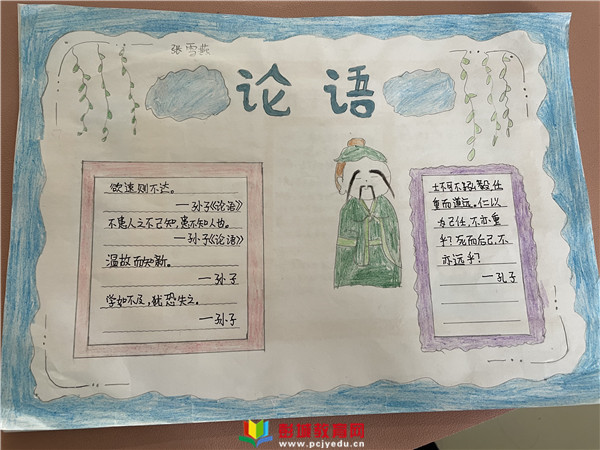 张雪燕
论 语
欲速则不达。
—孙子《论语》
不患人之不己知,患不知人也。
—孙子《论语》
温故而知新。
—孙子
学如不及,犹恐失之。
—孙子
士不可不弘毅,任
重而道远。仁以
为己任,不亦重
乎?死而后已,不
亦远乎?
—孔子
彭城教育网
www.pcjyedu.cn